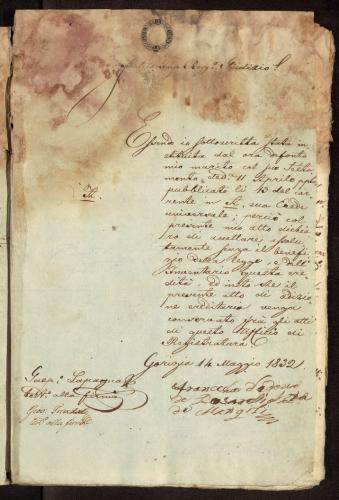 Giudizio
Essendo io sottoscritta stata in-
stituita dal ora defonto
mio marito col suo Testa-
mento 11 Aprile
pubblicato li 13 del cor-
rente in sua Erede
universale; perciò col
presente mio atto dichia-
ro di accettare assolu-
tamente senza il benefi-
zio della legge, e dell'
Inventario questa ere-
dità, ed insto che il
presente atto di adizio-
ne ereditaria venga
conservato fra gli atti
di questo Uffizio di
Registratura
Gorizia 14 Maggio 1832
alla firma
Giov.
alla firma
Francesca
de
de